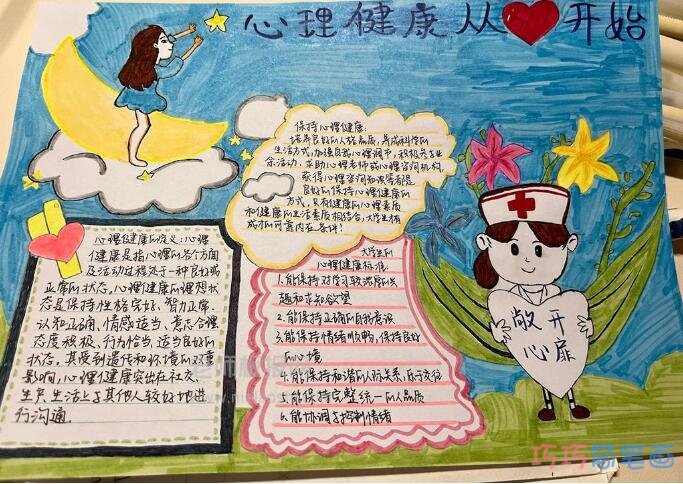 心理健康从 开始
保持心理健康:
培养良好的人格品质,养成科学的
生活方式,加强自我心理调节,积极参加业
余活动,求助心理老师或心理咨询机构,
获得心理咨询知识等都是
良好的保持心理健康的
方式,只有健康的心理素质
和健康的生活素质相结合,大学生有
成才的可靠内在条件!
心理健康的定义:心理
健康是指心理的各个方面
及活动过程处于一种良好或
正常的状态,心理健康的理想状
态是保持性格完好、智力正常、
认知正确、情感适当、意志合理、
态度积极、行为恰当、适当良好的
状态,其受到遗传和环境的双重
影响,心理健康突出在社交、
生产、生活上与其他人较好地进
行沟通.
大学生的
心理健康标准:
1.能保持对学习较浓厚的兴
趣和求知欲望
2.能保持正确的自我意识
3.能保持情绪顺畅,保持良好
的心境
4.能保持和谐的人际关系,乐于交往
5.能保持完整统一的人品质
6.能协调与控制情绪
敞开
心扉
巧巧简笔画